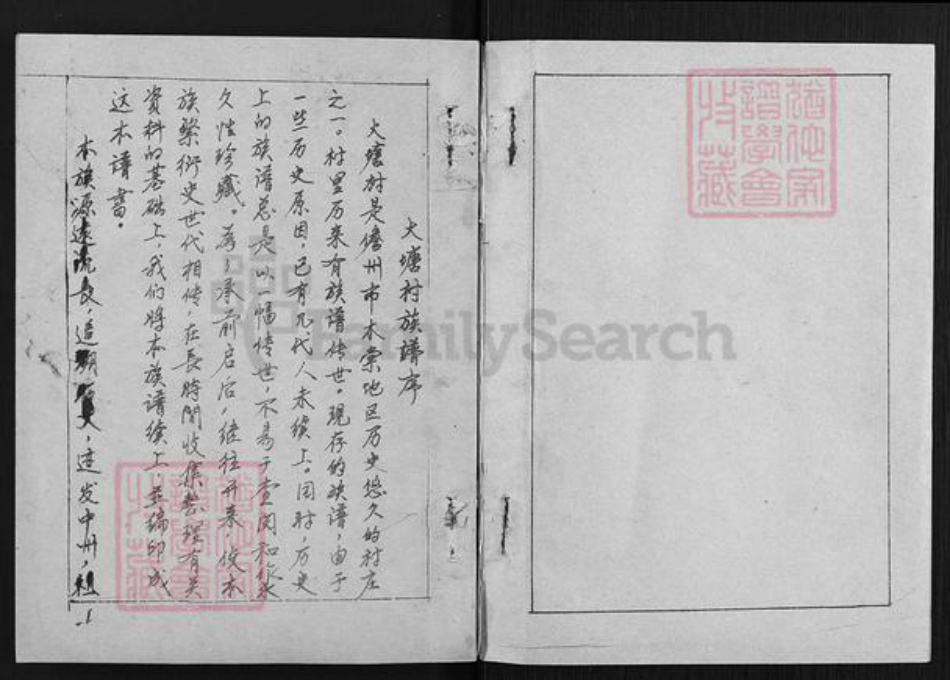 大塘村族譜序
大塘村是儋州市木棠地区历史悠久的村庄
之一。村里历来有族譜传世。现存的族谱，由于
一些历史原因，已有几代人未续上。同时，历史
上的族谱总是以一幅传世，不易于查阅和永
久性珍藏。为了承前启后，继往开来，使本
族繁衍史世代相传，在長時間收集整理有关
资料的基础上，我们将本族谱续上，並编印成
这本谱書。
本族源远流長，追溯，这发中州，祖
-1
猶他家譜學會收藏
猶他家譜學會收藏
FamilySearch